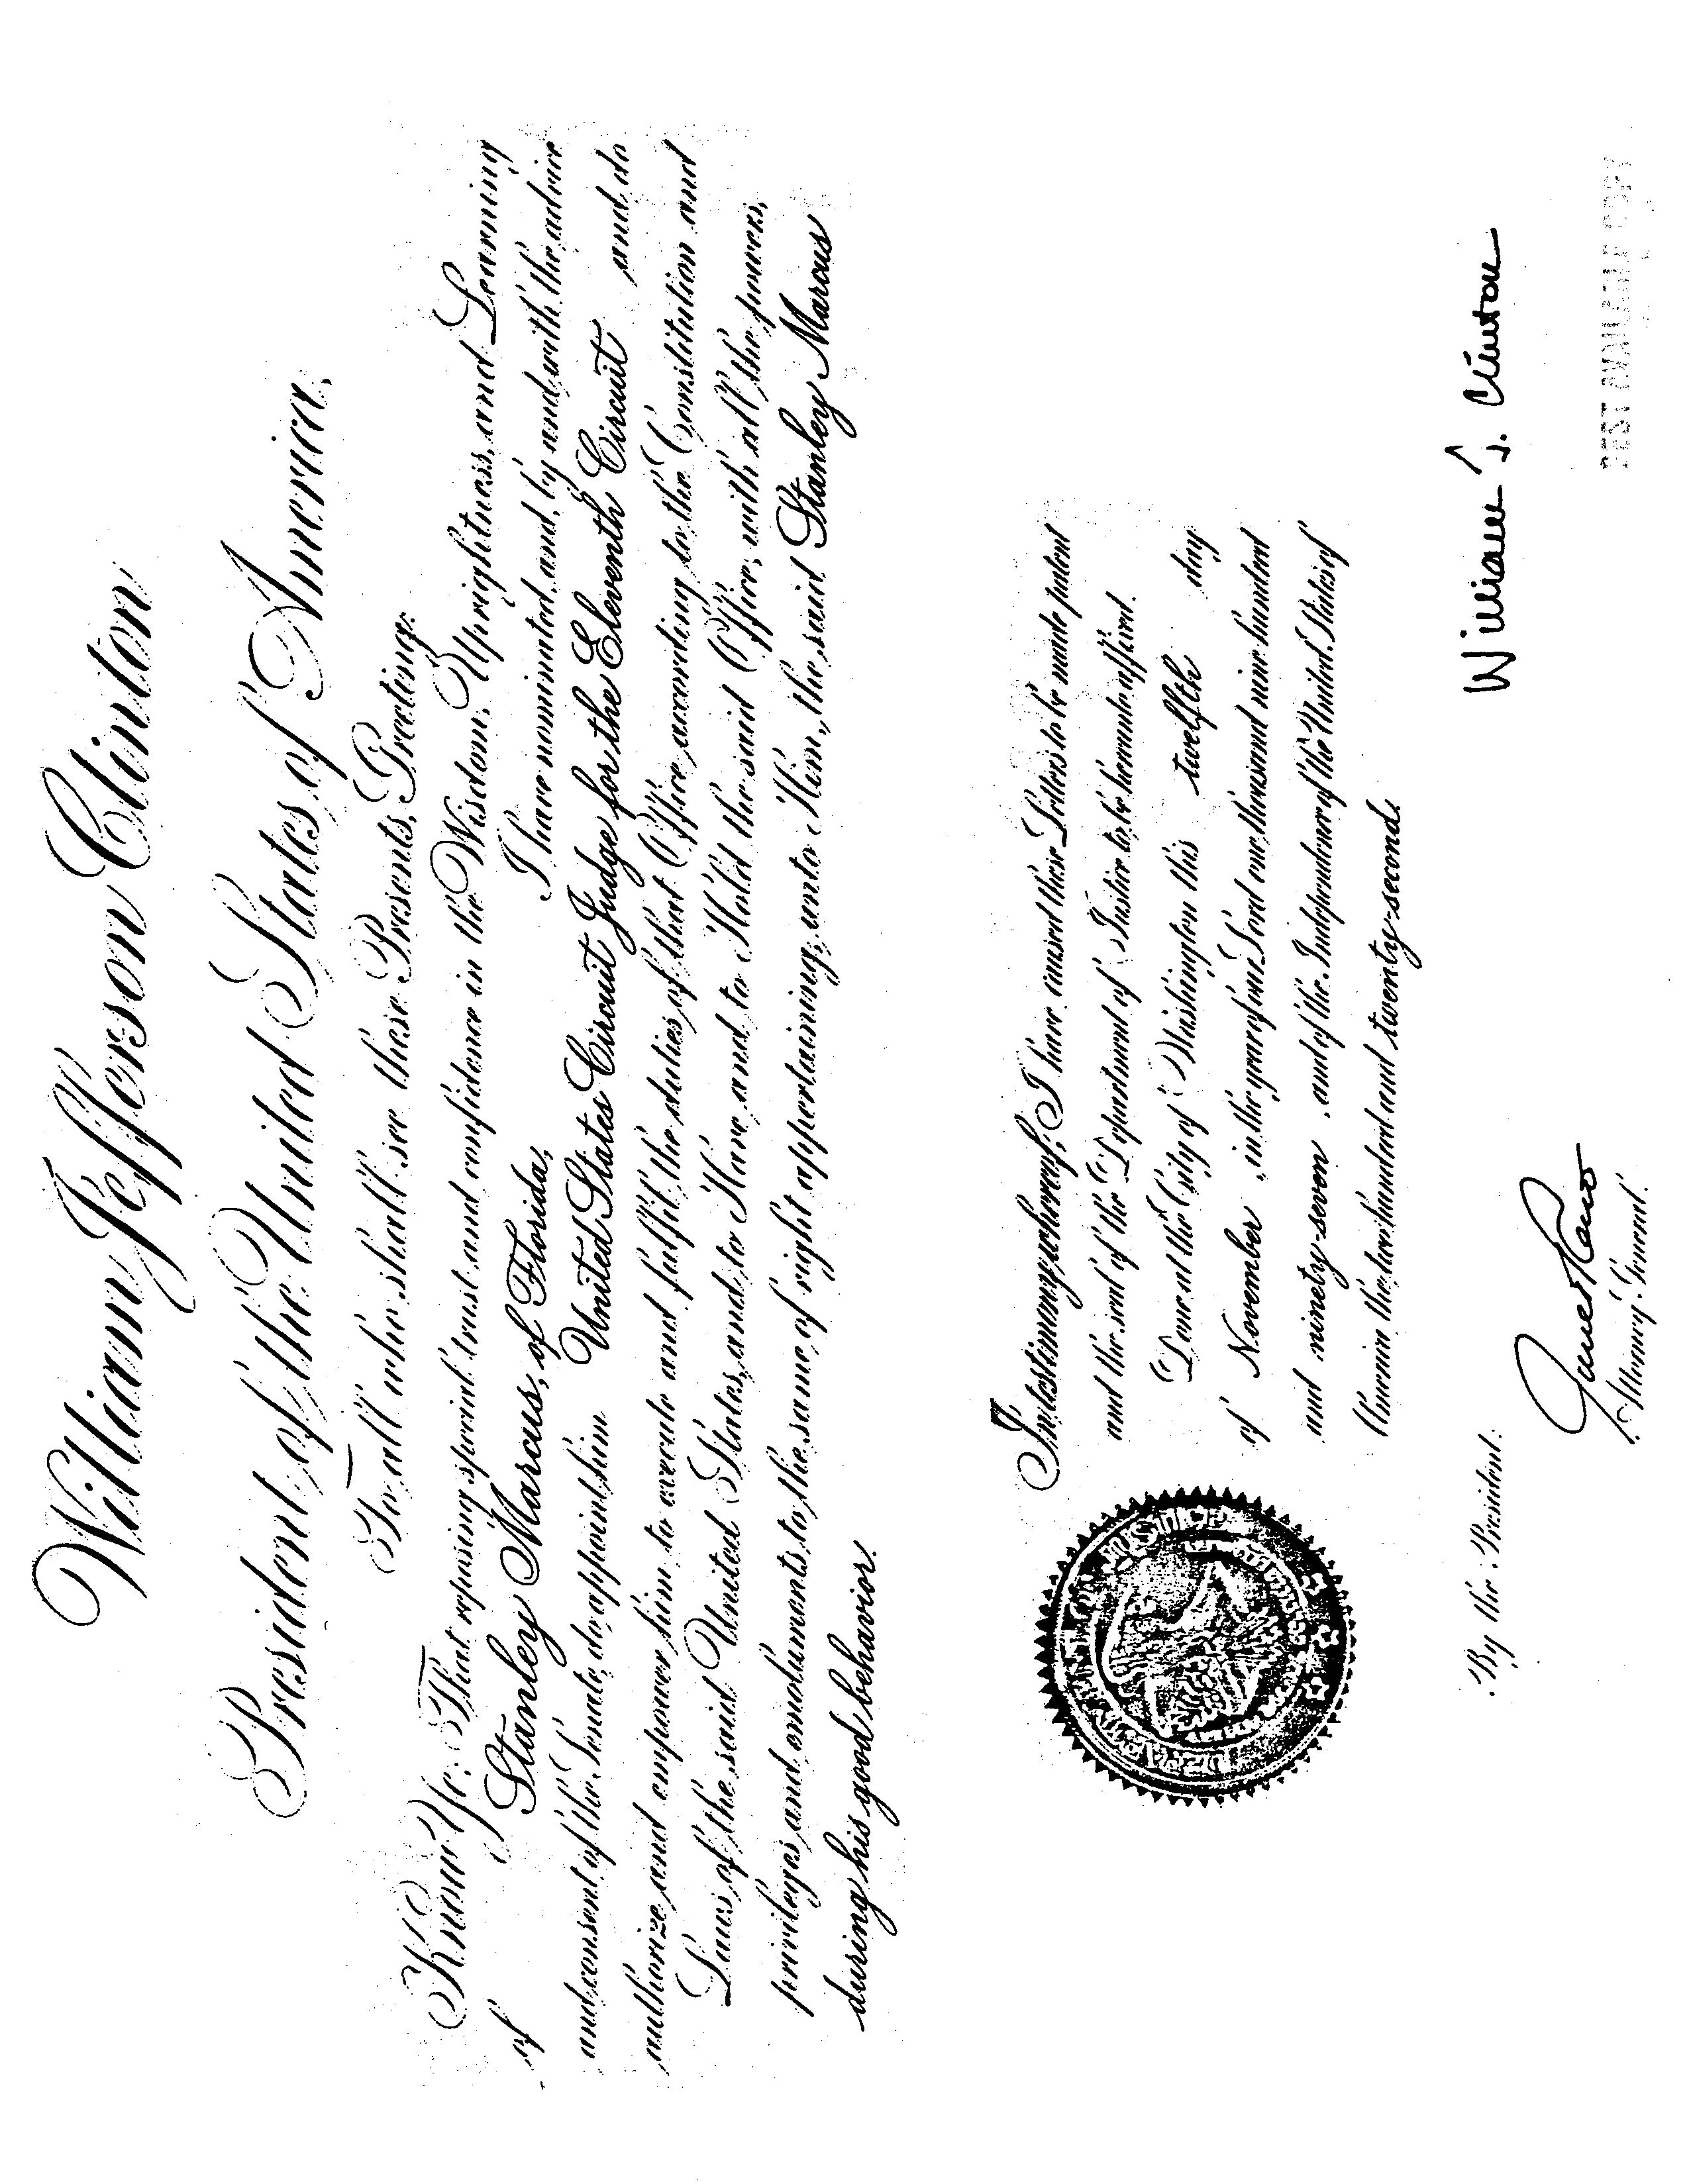 William Jefferson Clinton
President of the United States of America,
To all who shall see these Presents, Greeting:
Know Ye: That reposing special trust and confidence in the Wisdom, Uprightness, and Learning
of Stanley Marcus, of Florida, I have nominated, and, by and with the advice
and consent of the Senate, do appoint him United States Circuit Judge for the Eleventh Circuit and do
authorize and empower him to execute and fulfil the duties of that Office according to the Constitution and
Laws of the said United States, and to Have and to Hold the said Office, with all the powers,
privileges and emoluments to the same of right appertaining, unto Him, the said Stanley Marcus
during his good behavior.
In testimony whereof, I have caused these Letters to be made patent
and the seal of the Department of Justice to be hereunto affixed.
Done at the City of Washington this twelfth day
of November, in the year of our Lord one thousand nine hundred
and ninety-seven, and of the Independence of the United States of
America the two hundred and twenty-second.
William J. Clinton
By the President:
Janet Reno
Attorney General.
BEST AVAILABLE COPY